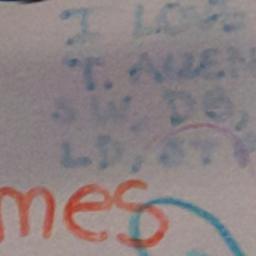 I LOVE
T. ALLEN
SW, DB,
LD, ST
mes